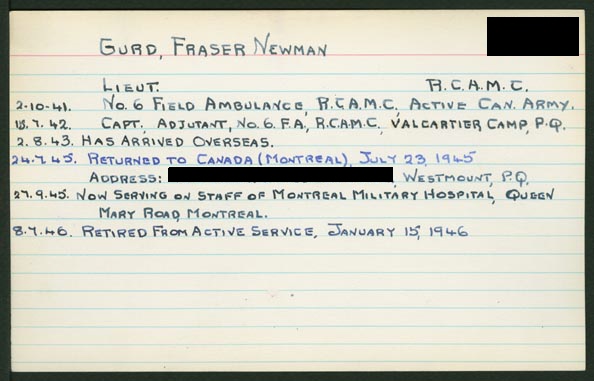 GURD, FRASER NEWMAN
LIEUT. R.C.A.M.C.
2-10-41. NO. 6 FIELD AMBULANCE, R.C.A.M.C., ACTIVE CAN. ARMY.
18.7.42. CAPT., ADJUTANT, NO. 6. F.A., R.C.A.M.C., VALCARTIER CAMP, P.Q.
2.8.43. HAS ARRIVED OVERSEAS.
24.7.45. RETURNED TO CANADA (MONTREAL), JULY 23, 1945
ADDRESS: , WESTMOUNT, P.Q.
27.9.45. NOW SERVING ON STAFF OF MONTREAL MILITARY HOSPITAL, QUEEN
MARY ROAD, MONTREAL.
8.7.46. RETIRED FROM ACTIVE SERVICE, JANUARY 15, 1946